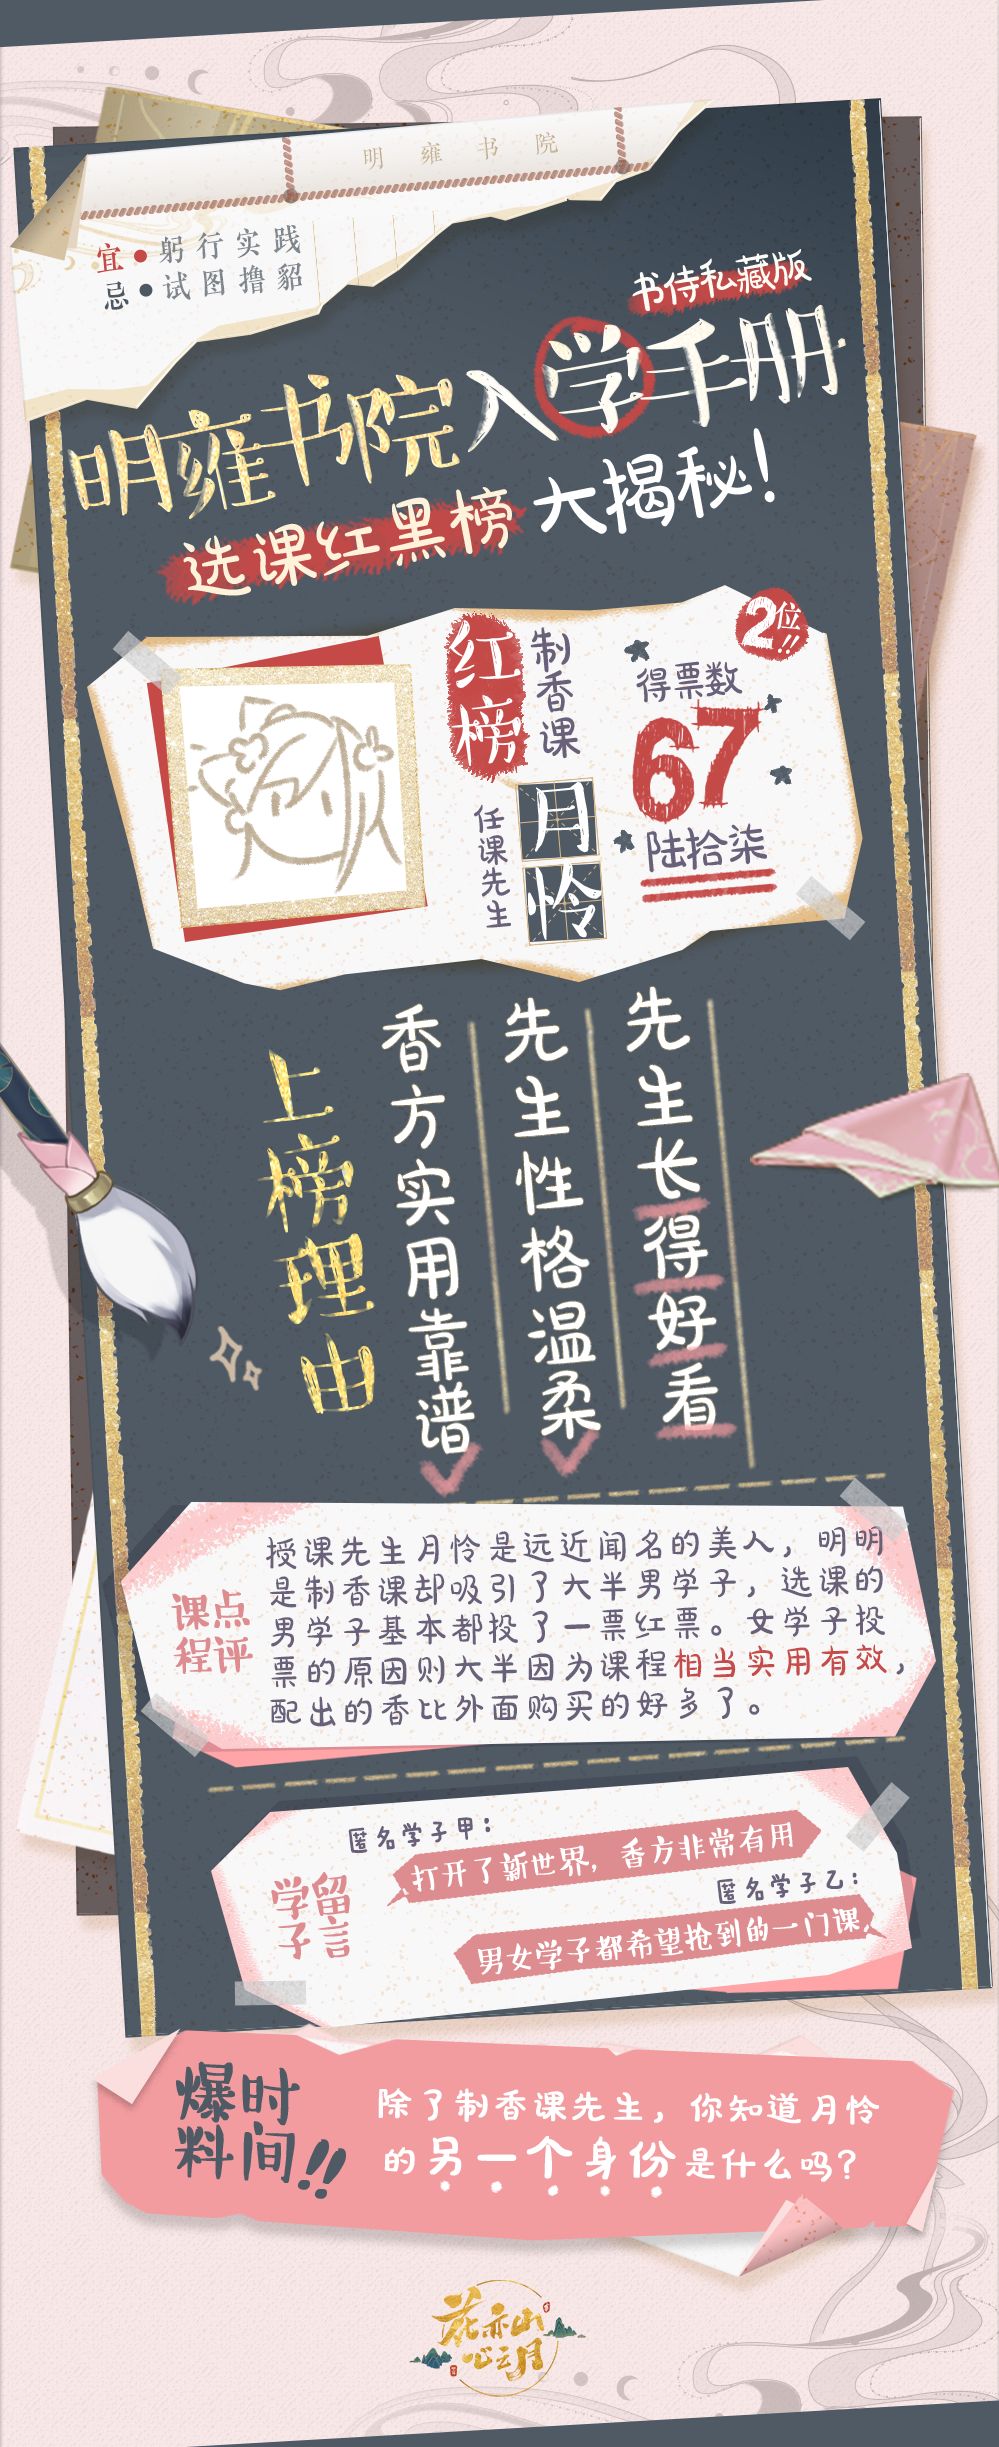 明雍书院
宜●躬行实践
忌●试图撸貂
书侍私藏版
明雍书院入学手册
选课红黑榜大揭秘！
红榜
制香课
任课先生
月怜
2位!!
得票数
67
陆拾柒
上榜理由
香方实用靠谱
先生性格温柔
先生长得好看
课程点评
授课先生月怜是远近闻名的美人，明明
是制香课却吸引了大半男学子，选课的
男学子基本都投了一票红票。女学子投
票的原因则大半因为课程相当实用有效，
配出的香比外面购买的好多了。
学子留言
匿名学子甲：
打开了新世界，香方非常有用
匿名学子乙：
男女学子都希望抢到的一门课
爆料时间!!
除了制香课先生，你知道月怜
的另一个身份是什么吗？
花亦山
心之月